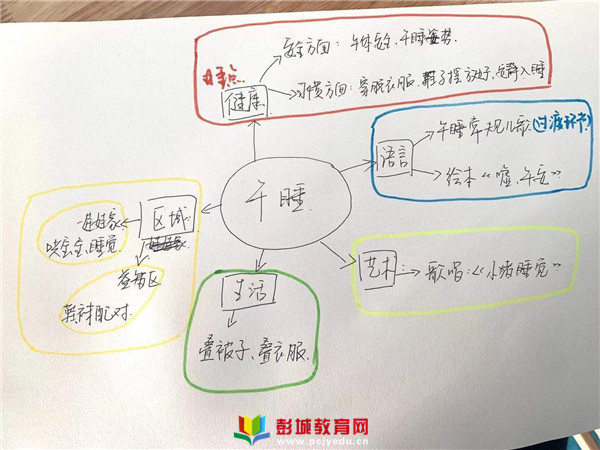 重点
健康
安全方面：午休安全、午睡姿势.
习惯方面：穿脱衣服、鞋子摆放好、安静入睡
语言
午睡常规儿歌(过渡环节)
绘本《嘘、午安》
午睡.
艺术
歌唱：《小猪睡觉》
生活
叠被子、叠衣服.
区域
娃娃家
哄宝宝睡觉.
益智区
鞋袜配对.
彭城教育网
www.pcjyedu.cn